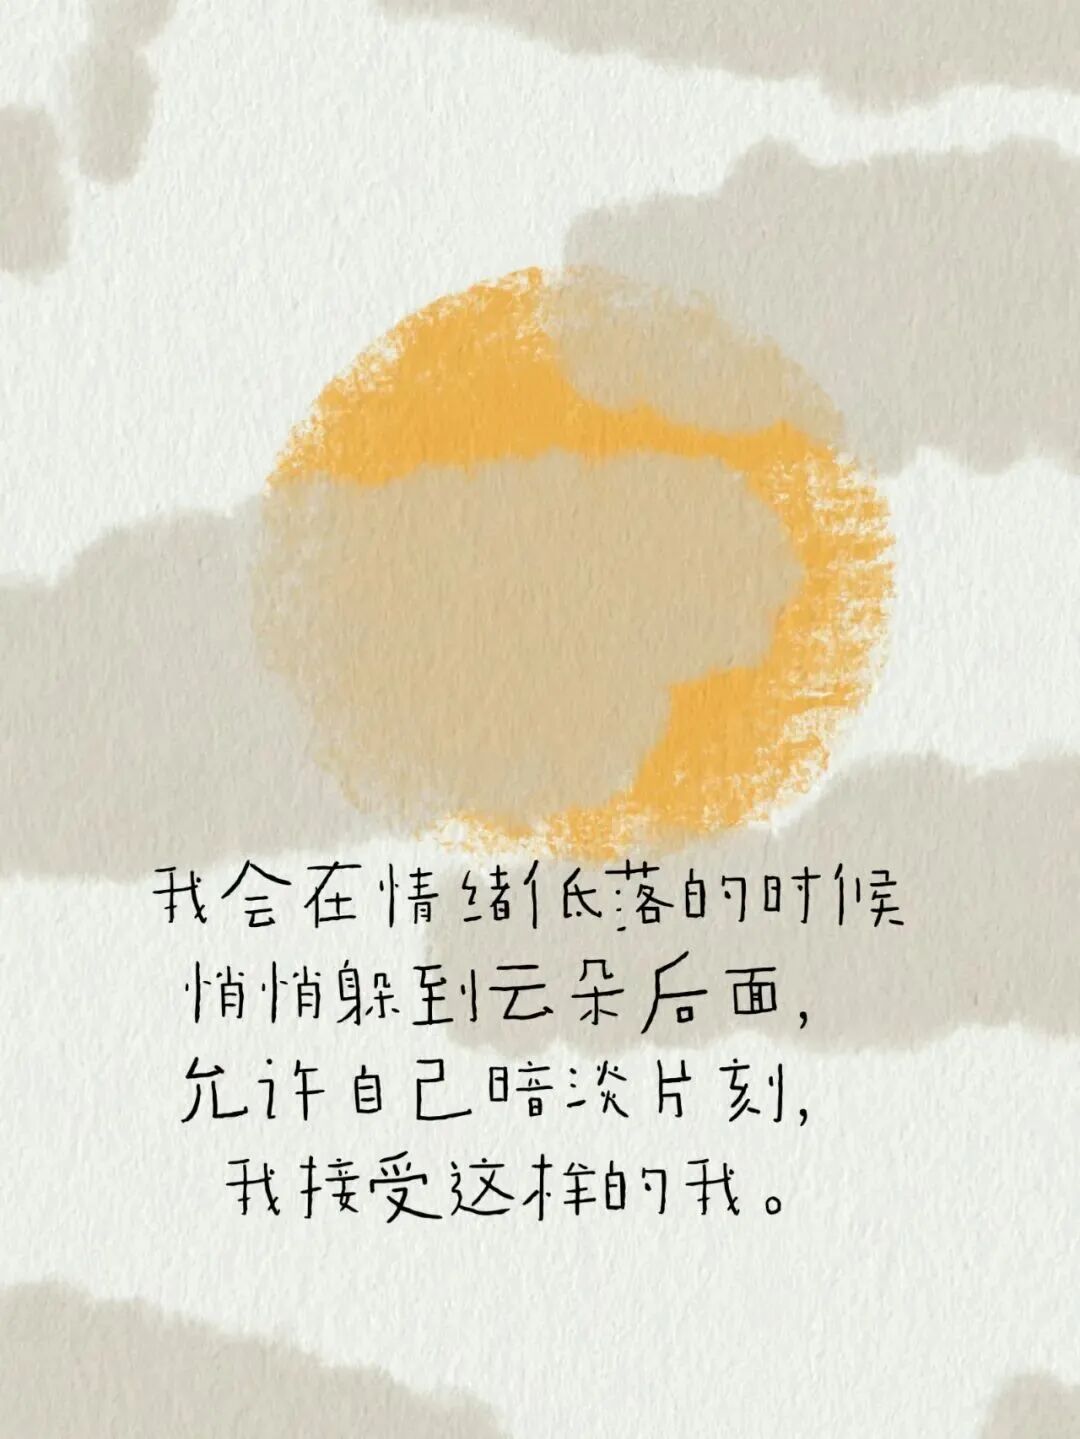 我会在情绪低落的时候
悄悄躲到云朵后面，
允许自己暗淡片刻，
我接受这样的我。